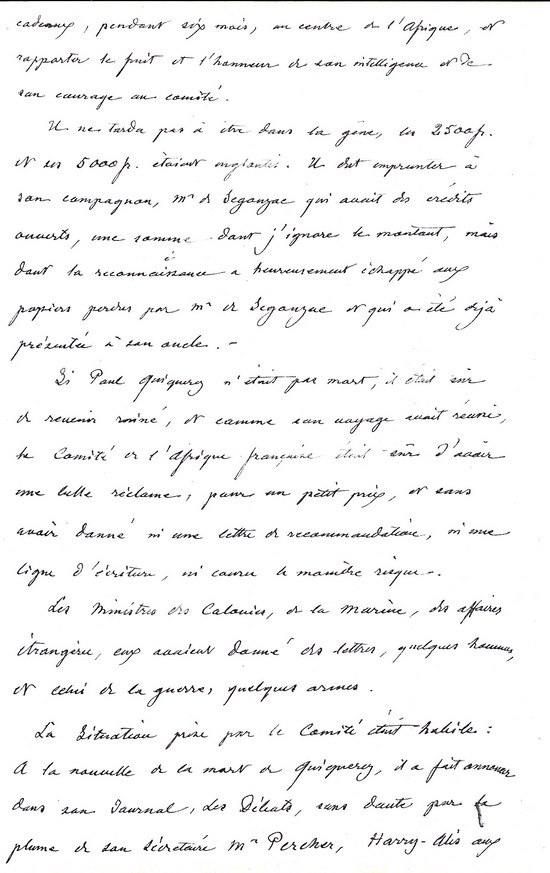 cadeaux, pendant six mois, au centre de l'Afrique, et
rapporter le fruit et l'honneur de son intelligence et de
son courage au comité.
Il ne tarda pas à être dans la gêne, les 2500 fr.
et ses 5000 fr. étaient englantis. Il dut emprunter à
son compagnon, Mr de Segonzac qui avait des crédits
ouverts, une somme dont j'ignore le montant, mais
dont la reconnaissance a heureusement échappé aux
papiers perdus par Mr de Segonzac et qui a été déjà
présentée à son oncle. -
Si Paul Quiquerez n'était pas mort, il était sûr
de revenir ruiné, et comme son voyage avait réussi,
le Comité de l'Afrique française était sûr d'avoir
une belle réclame, pour un petit prix, et sans
avoir donné ni une lettre de recommandation, ni une
ligne d'écriture, ni couru le moindre risque.
Les Ministres des Colonies, de la Marine, des affaires
étrangère, eux avaient donné des lettres, quelques hommes,
et celui de la guerre, quelques armes.
La Situation prise par le Comité était habile :
A la nouvelle de la mort de Quiquerez, il a fait annoncer
dans son Journal, Les Débats, sans doute par la
plume de son secrétaire Mr Percher, Harry-Alis aux